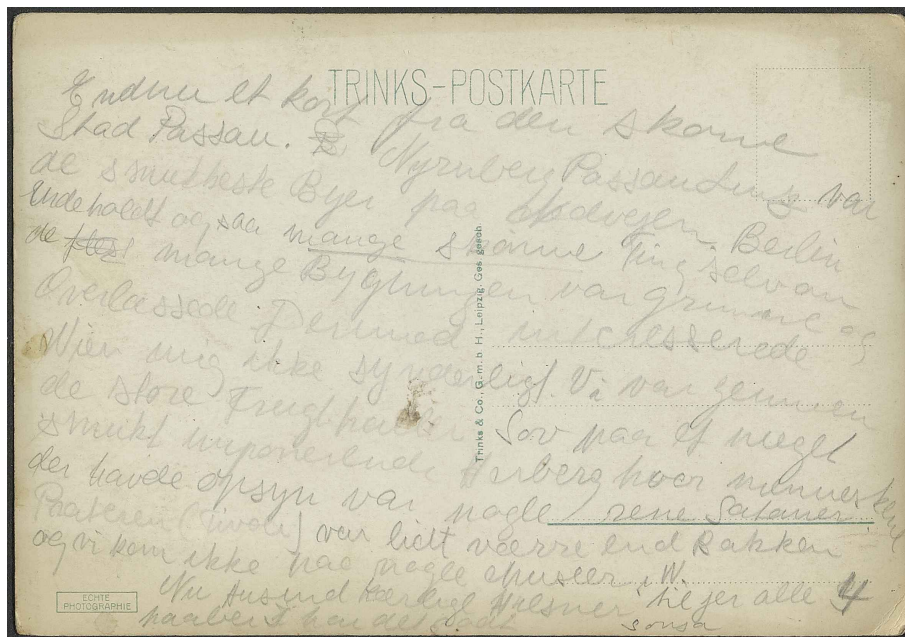 TRINKS-POSTKARTE
Endnu et kort fra den skønne
Stad Passau. Nyrnberg Passau Linz var
de smukkeste Byer paa Berlin
Indeholdt ogsaa mange skønne Ting selv om
de mange Bygninger var grimme og
Overlæssede Derimod interesserede
Wien mig ikke synderligt. Vi var gennem
de store Sov paa et meget
smukt imponerende Herberg hvor menneskene
der havde opsyn var nogle rene Sataner.
Prateren (Tivoli) var lidt værre end Bakken
og vi kom ikke paa nogle museer i W.
Nu tusind kærlige Hilsner til jer alle 4
haaber I har det godt
Trinks & Co., G.m.b.H., Leipzig. Ges. gesch.
ECHTE
PHOTOGRAPHIE